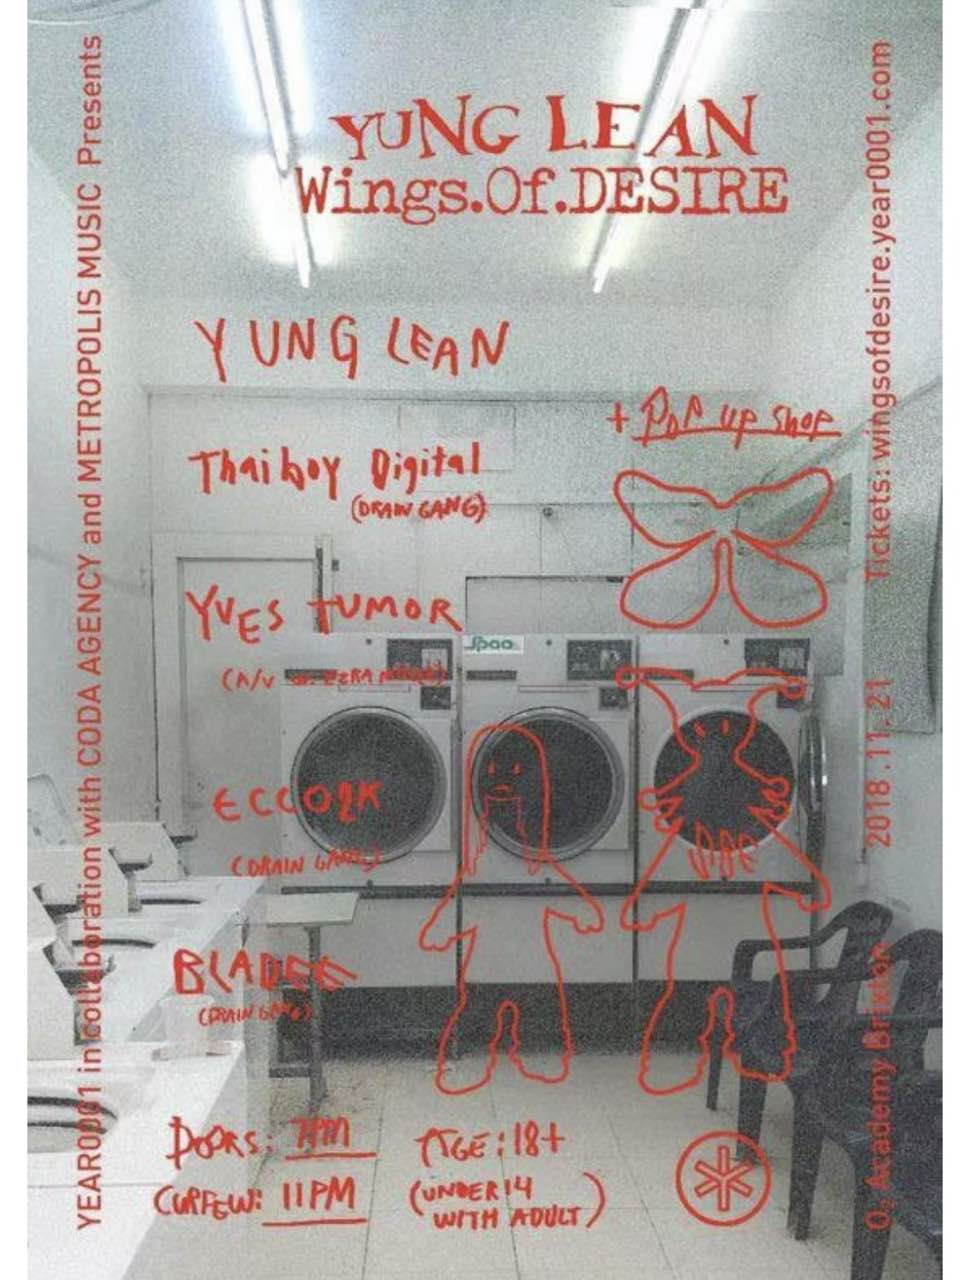 YUNG LEAN
Wings.Of.DESIRE
YUNG LEAN
+ POP UP SHOP
Thaiboy Digital
(DRAIN GANG)
YVES TUMOR
(A/V EZRA
ECCO2K
(DRAIN GANG)
BLADEE
(DRAIN GANG)
DOORS: 7PM
CURFEW: 11PM
AGE: 18+
(UNDER 14
WITH ADULT)
YEAR0001 in collaboration with CODA AGENCY and METROPOLIS MUSIC Presents
O₂ Academy Brixton 2018.11.21 Tickets: wingsofdesire.year0001.com